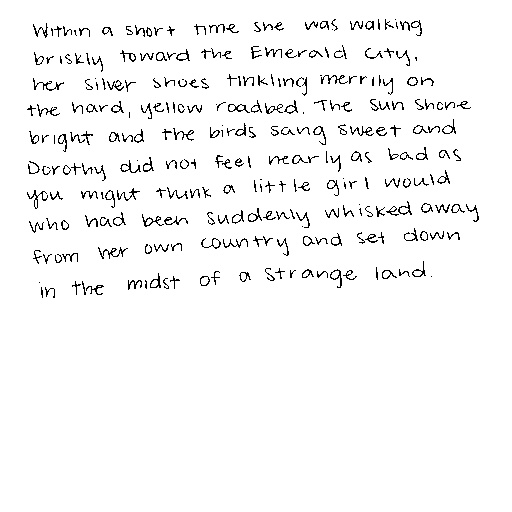 Within a short time she was walking
briskly toward the Emerald City,
her silver shoes tinkling merrily on
the hard, yellow roadbed. The sun shone
bright and the birds sang sweet and
Dorothy did not feel nearly as bad as
you might think a little girl would
who had been suddenly whisked away
from her own country and set down
in the midst of a strange land.